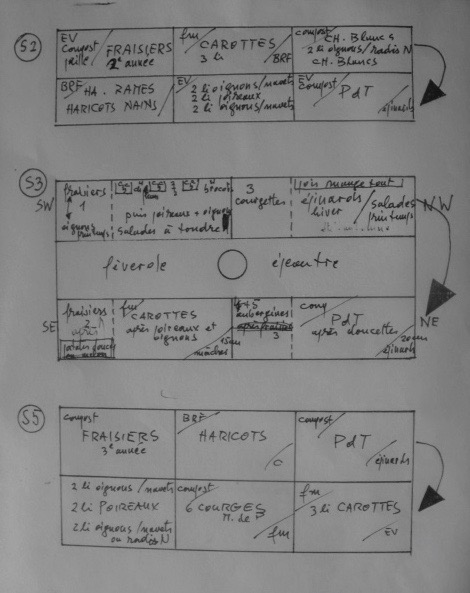 S2
EV
Compost
paille
FRAISIERS
2e année
fm
CAROTTES
3 li
BRF
compost
CH. Blancs
2 li oignons/radis N
CH. Blancs
BRF
HA. RAMES
HARICOTS NAINS
EV
2 li oignons/navets
2 li poireaux
2 li oignons/navets
EV
compost
PdT
épinards
S3
SW
fraisiers
1
oignons
printemps
puis poireaux + oignons
salades à tondre
3
courgettes
pois mange tout
épinards
hiver
salades
printemps
NW
féverole
épeautre
SE
fraisiers
2
après
fm
CAROTTES
après poireaux et
oignons
15cm
mâches
4+5
aubergines
3
PdT
après doucettes
20cm
épinards
NE
S5
compost
FRAISIERS
3e année
BRF
HARICOTS
C
compost
PdT
épinards
2 li oignons/navets
2 li POIREAUX
2 li oignons/navets
ou radis N
compost
6 COURGES
M. de P
fm
fm
3 li CAROTTES
EV